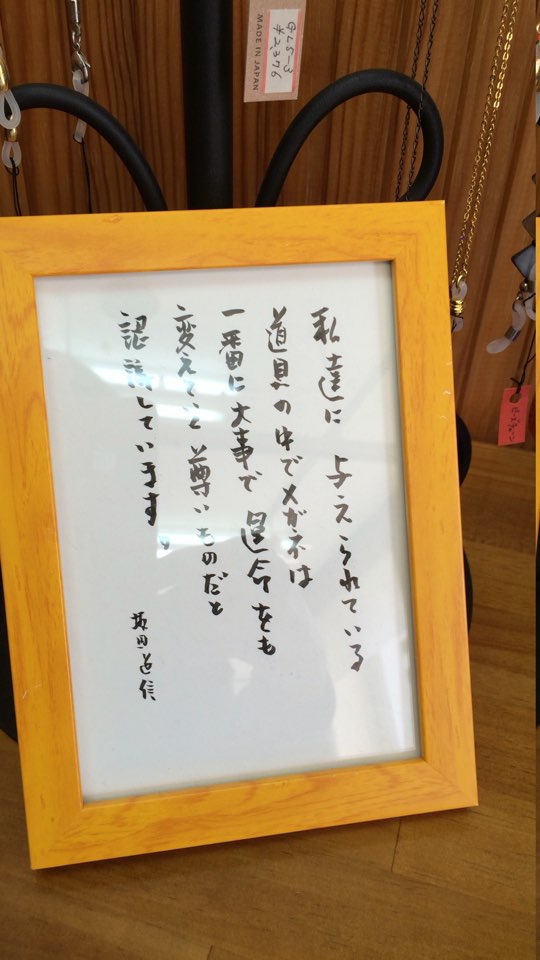 GLS-3
¥2,376
MADE IN JAPAN
私達に 与えられている
道具の中でメガネは
一番に大事で 運命をも
変えていく尊いものだと
認識しています。
坂田道信